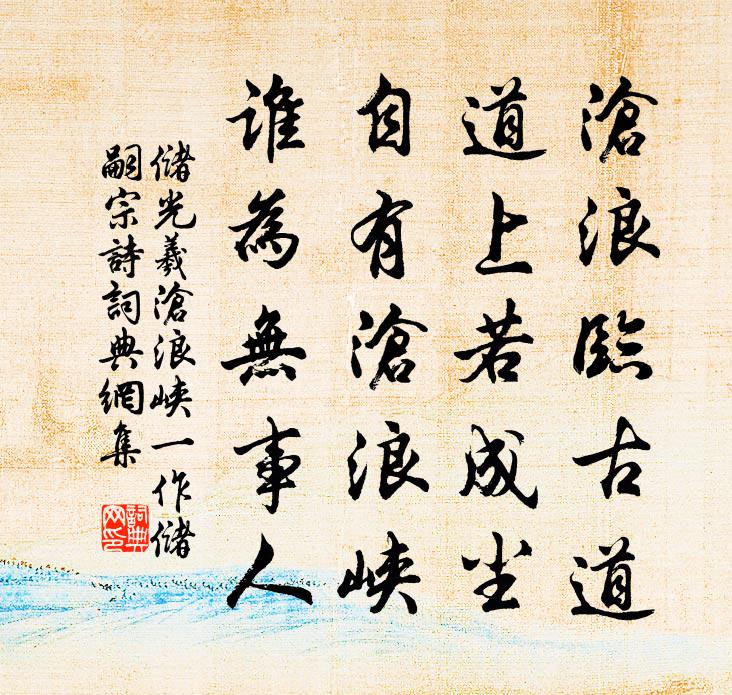 滄浪臨古道
道上若成尘
自有滄浪峽
誰為無事人
儲光羲滄浪峽一作儲
嗣宗詩詞典網集
詞典
网印